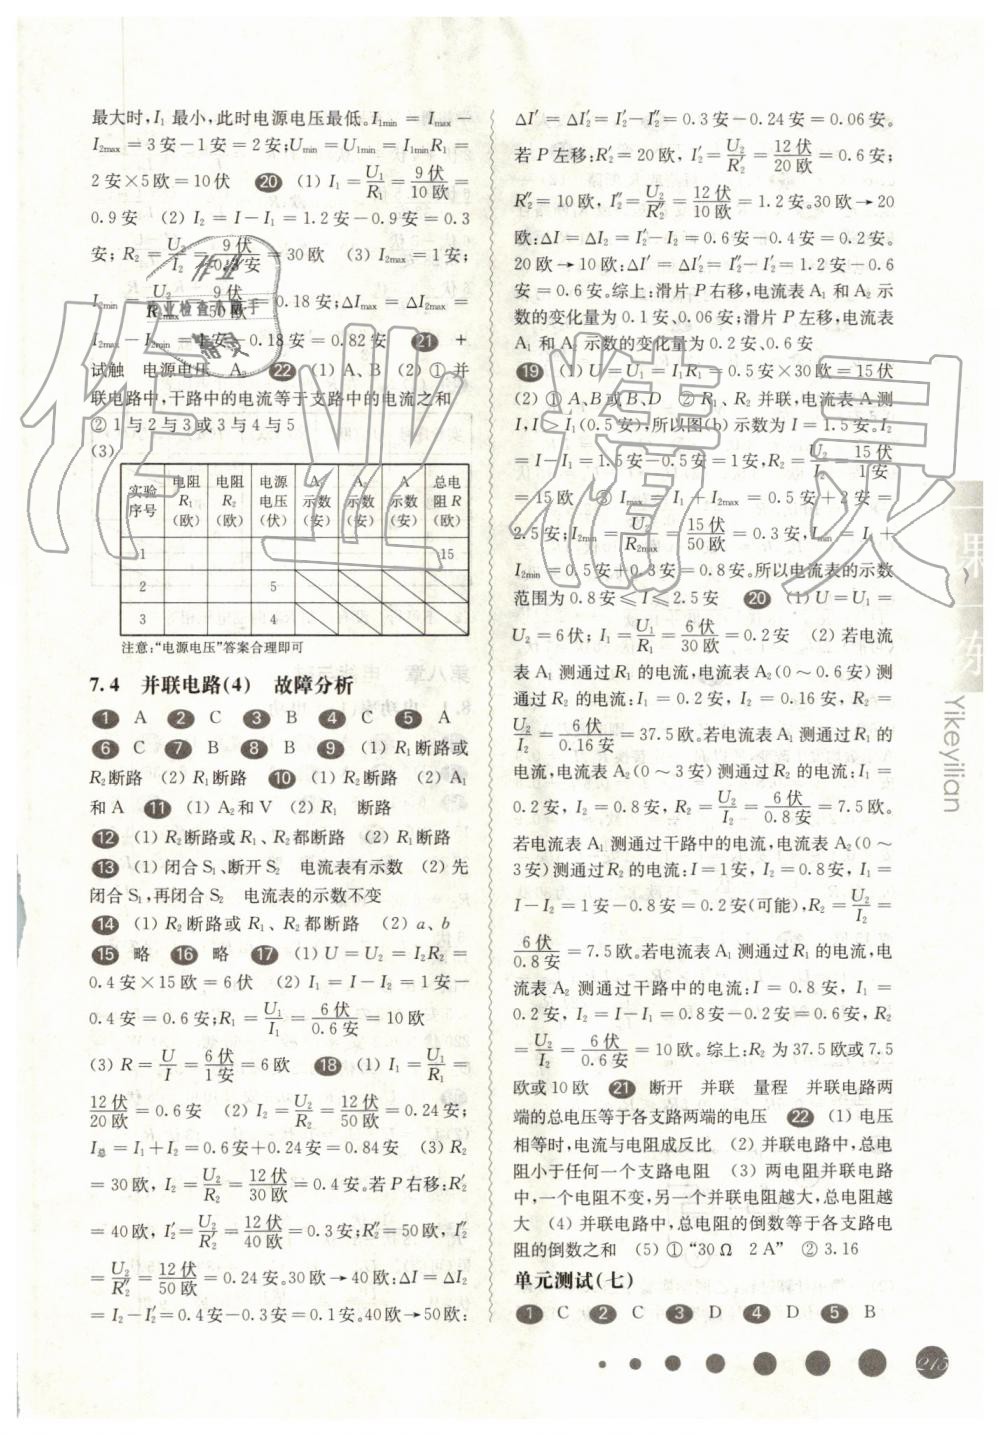 最大时,I₁ 最小,此时电源电压最低。I₁min = Imax −
I₂max = 3安 − 1安 = 2安;Umin = U₁min = I₁minR₁ =
2安×5欧=10伏 20 (1) I₁ = U₁/R₁ = 9伏/10欧 =
0.9安 (2) I₂ = I − I₁ = 1.2安 − 0.9安 = 0.3
安; R₂ = U₂/I₂ = 9伏/0.3安 = 30欧 (3) I₂max = 1安;
I₂min = U₂/R₂max = 9伏/50欧 = 0.18安;ΔImax = ΔI₂max =
I₂max − I₂min = 1安 − 0.18安 = 0.82安 21 +
试触 电源电压 A₂ 22 (1) A、B (2) ① 并
联电路中,干路中的电流等于支路中的电流之和
② 1与2与3或3与4与5
(3)
实验序号 电阻R₁(欧) 电阻R₂(欧) 电源电压(伏) A₁示数(安) A₂示数(安) A示数(安) 总电阻R(欧)
1 15
2 5
3 4
注意:“电源电压”答案合理即可
7.4 并联电路(4) 故障分析
1 A 2 C 3 B 4 C 5 A
6 C 7 B 8 B 9 (1) R₁断路或
R₂断路 (2) R₁断路 10 (1) R₂断路 (2) A₁
和A 11 (1) A₂和V (2) R₁ 断路
12 (1) R₂断路或R₁、R₂都断路 (2) R₁断路
13 (1) 闭合S₁、断开S₂ 电流表有示数 (2) 先
闭合S₁,再闭合S₂ 电流表的示数不变
14 (1) R₂断路或R₁、R₂都断路 (2) a、b
15 略 16 略 17 (1) U = U₂ = I₂R₂ =
0.4安×15欧=6伏 (2) I₁ = I − I₂ = 1安 −
0.4安 = 0.6安;R₁ = U₁/I₁ = 6伏/0.6安 = 10欧
(3) R = U/I = 6伏/1安 = 6欧 18 (1) I₁ = U₁/R₁ =
12伏/20欧 = 0.6安 (2) I₂ = U₂/R₂ = 12伏/50欧 = 0.24安;
I总 = I₁ + I₂ = 0.6安+0.24安=0.84安 (3) R₂
= 30欧, I₂ = U₂/R₂ = 12伏/30欧 = 0.4安。若P右移:R₂′
= 40欧, I₂′ = U₂/R₂′ = 12伏/40欧 = 0.3安;R₂″ = 50欧, I₂″
= U₂/R₂″ = 12伏/50欧 = 0.24安。30欧→40欧:ΔI = ΔI₂
= I₂ − I₂′ = 0.4安−0.3安 = 0.1安。40欧→50欧:
ΔI′ = ΔI₂′ = I₂′ − I₂″ = 0.3安 − 0.24安 = 0.06安。
若P左移:R₂′ = 20欧, I₂′ = U₂/R₂′ = 12伏/20欧 = 0.6安;
R₂″ = 10欧, I₂″ = U₂/R₂″ = 12伏/10欧 = 1.2安。30欧→20
欧:ΔI = ΔI₂ = I₂′ − I₂ = 0.6安 − 0.4安 = 0.2安。
20欧→10欧:ΔI′ = ΔI₂′ = I₂″ − I₂′ = 1.2安 − 0.6
安 = 0.6安。综上:滑片P右移,电流表A₁和A₂示
数的变化量为0.1安、0.06安;滑片P左移,电流表
A₁和A₂示数的变化量为0.2安、0.6安
19 (1) U = U₁ = I₁R₁ = 0.5安×30欧 = 15伏
(2) ① A、B或B、D ② R₁、R₂并联,电流表A测
I,I > I₁(0.5安),所以图(b)示数为I = 1.5安。I₂
= I − I₁ = 1.5安 − 0.5安 = 1安,R₂ = U₂/I₂ = 15伏/1安
= 15欧 ③ Imax = I₁ + I₂max = 0.5安 + 2安 =
2.5安;I₂min = U₂/R₂max = 15伏/50欧 = 0.3安,Imin = I₁ +
I₂min = 0.5安 + 0.3安 = 0.8安。所以电流表的示数
范围为0.8安 ≤ I ≤ 2.5安 20 (1) U = U₁ =
U₂ = 6伏; I₁ = U₁/R₁ = 6伏/30欧 = 0.2安 (2) 若电流
表A₁测通过R₁的电流,电流表A₂(0～0.6安)测
通过R₂的电流:I₁ = 0.2安, I₂ = 0.16安, R₂ =
U₂/I₂ = 6伏/0.16安 = 37.5欧。若电流表A₁测通过R₁的
电流,电流表A₂(0～3安)测通过R₂的电流:I₁ =
0.2安, I₂ = 0.8安, R₂ = U₂/I₂ = 6伏/0.8安 = 7.5欧。
若电流表A₁测通过干路中的电流,电流表A₂(0～
3安)测通过R₂的电流:I = 1安, I₂ = 0.8安, I₁ =
I − I₂ = 1安 − 0.8安 = 0.2安(可能),R₂ = U₂/I₂ =
6伏/0.8安 = 7.5欧。若电流表A₁测通过R₁的电流,电
流表A₂测通过干路中的电流:I = 0.8安, I₁ =
0.2安, I₂ = I − I₁ = 0.8安 − 0.2安 = 0.6安, R₂
= U₂/I₂ = 6伏/0.6安 = 10欧。综上:R₂为37.5欧或7.5
欧或10欧 21 断开 并联 量程 并联电路两
端的总电压等于各支路两端的电压 22 (1) 电压
相等时,电流与电阻成反比 (2) 并联电路中,总电
阻小于任何一个支路电阻 (3) 两电阻并联电路
中,一个电阻不变,另一个并联电阻越大,总电阻越
大 (4) 并联电路中,总电阻的倒数等于各支路电
阻的倒数之和 (5) ① “30 Ω 2 A” ② 3.16
单元测试(七)
1 C 2 C 3 D 4 D 5 B
一课一练
Yikeyilian
215
作业检查小助手
作业精灵